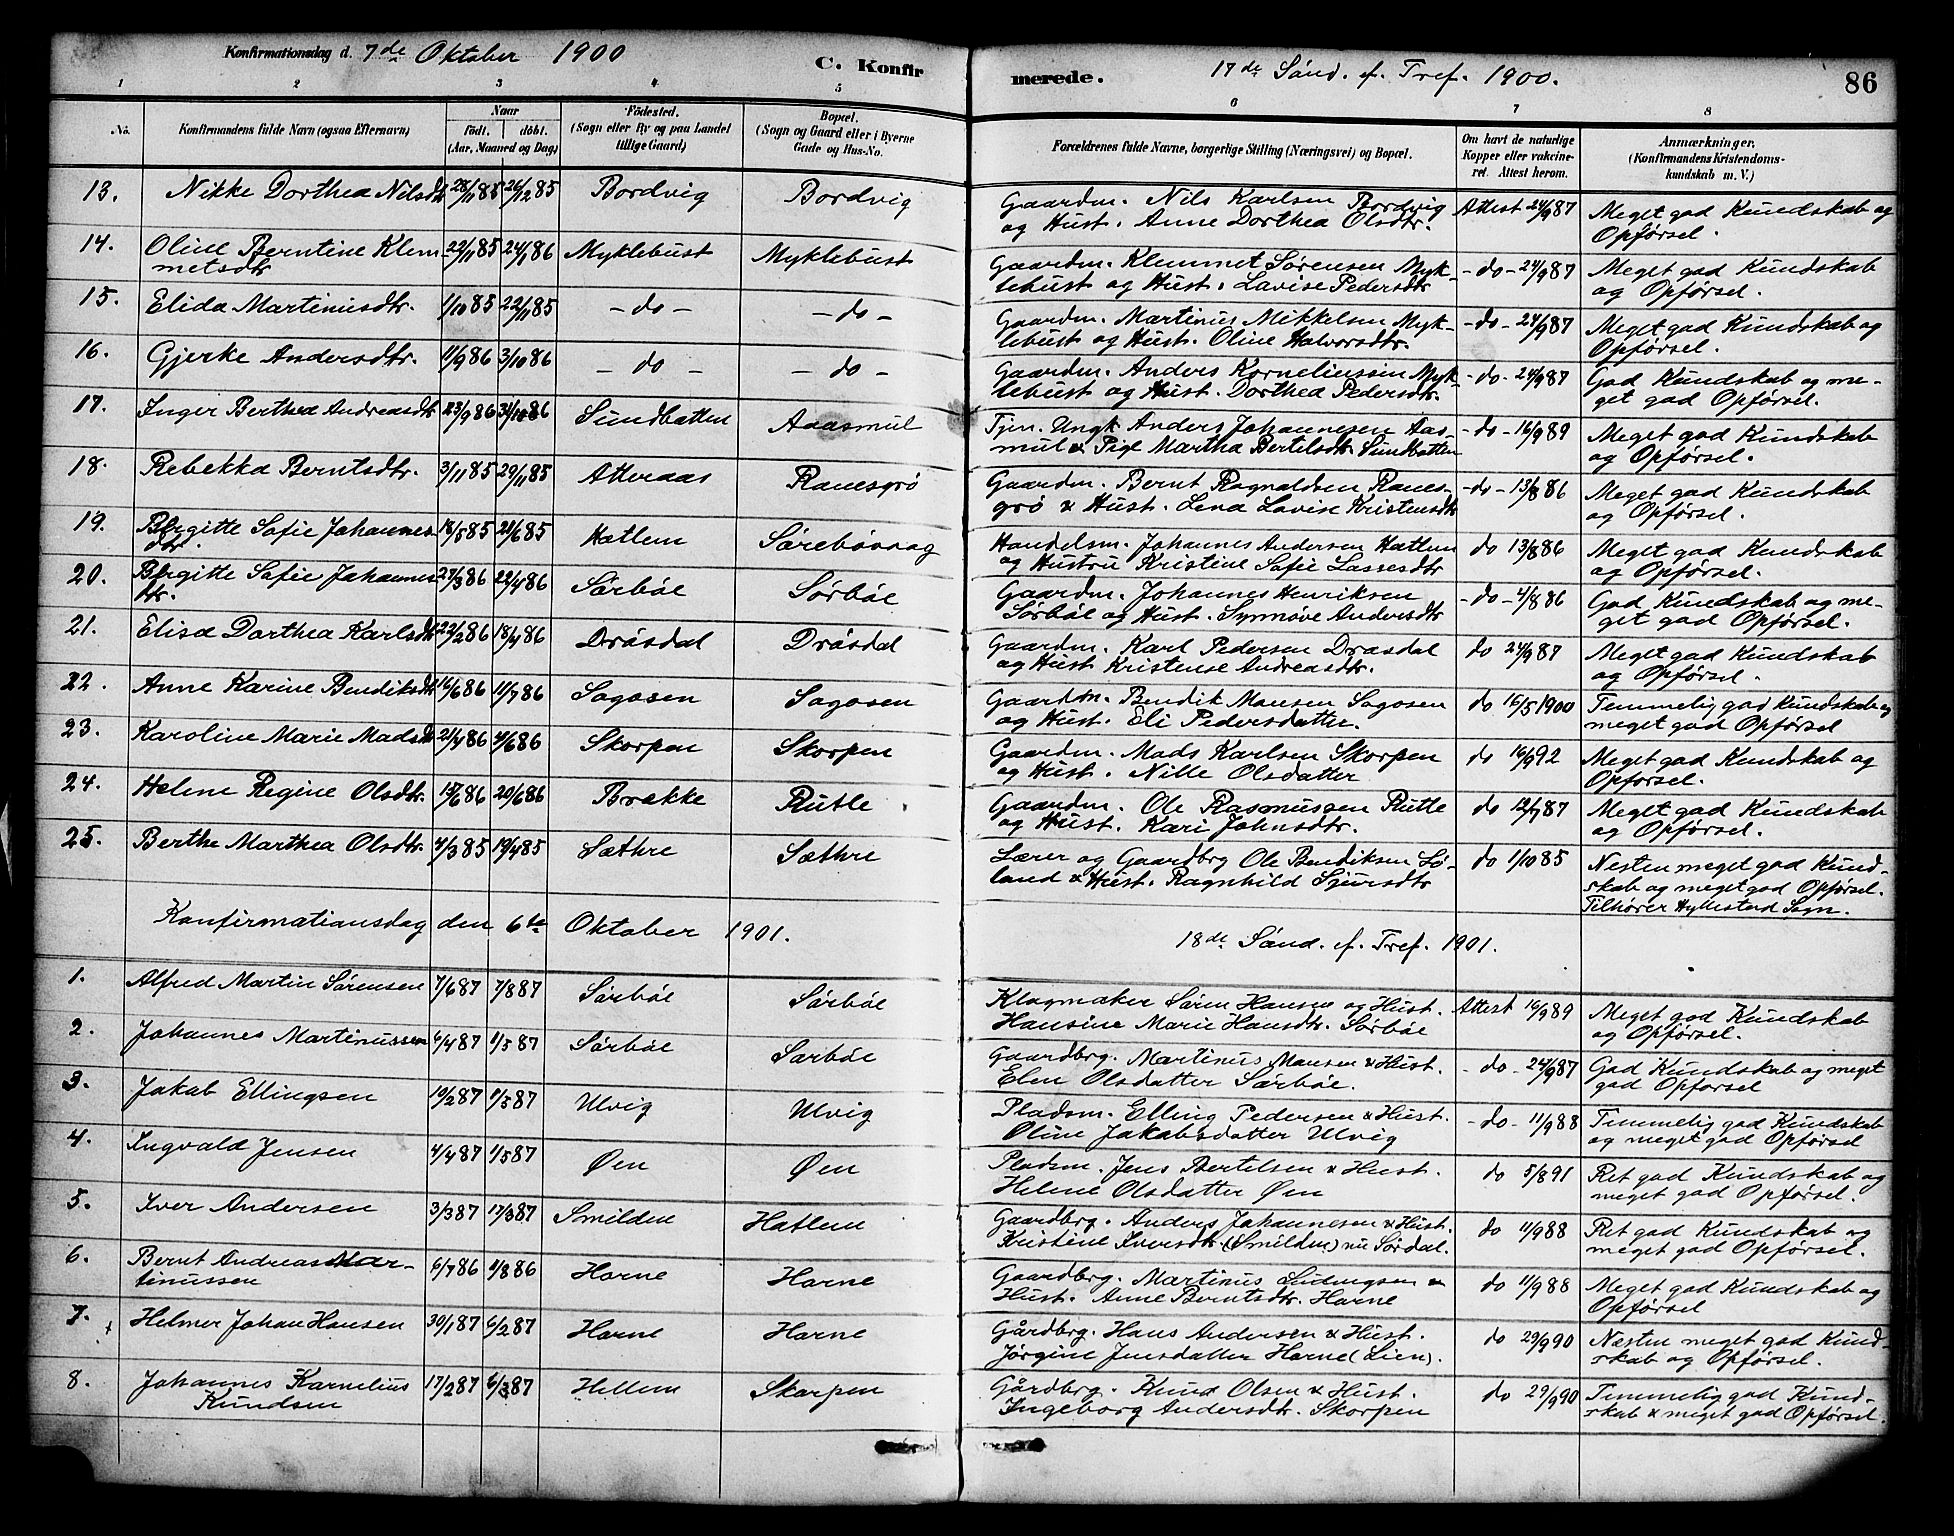 Konfirmationsdag d. 7de Oktober 1900
C. Konfir
merede.
17de Sönd. e. Tref. 1900.
86
1 2 3 4 5 6 7 8
No.
Konfirmandens fulde Navn (ogsaa Efternavn)
Naar
födt. döbt.
(Aar, Maaned og Dag)
Födested.
(Sogn eller By og paa Landet
tillige Gaard)
Bopæl.
(Sogn og Gaard eller i Byerne
Gade og Hus-No.
Forældrenes fulde Navne, borgerlige Stilling (Næringsvei) og Bopæl.
Om havt de naturlige
Kopper eller vakcine-
ret. Attest herom.
Anmærkninger.
(Konfirmandens Kristendoms-
kundskab m. V.)
13. Nikke Dorthea Nilsdtr 28/11 85 26/12 85 Bordvig Bordvig Gaardm. Nils Karlsen Bordvig Attest 24/9 87 Meget god Kundskab og
og Hust. Anne Dorthea Olsdtr. Opförsel.
14. Oline Berntine Klem- 22/11 85 24/1 86 Myklebust Myklebust Gaardm. Klemmet Sørensen Myk- -do- 24/9 87 Meget god Kundskab
metsdtr lebust og Hust. Lavise Pedersdtr og Opførsel.
15. Elida Martinusdtr. 1/10 85 22/11 85 -do- -do- Gaardm. Martinus Mikkelsen Myk- -do- 24/9 87 Meget god Kundskab og
lebust og Hust. Oline Halvorsdtr. Opførsel.
16. Gjerke Andersdtr. 11/9 86 3/10 86 -do- -do- Gaardm. Anders Korneliussen Myk- -do- 24/9 87 God Kundskab og me-
lebust og Hust. Dorthea Pedersdtr. get god Opførsel.
17. Inger Berthea Andreasdtr 23/9 86 31/10 86 Sundhatten Aaasmul Tjen. Ungk Anders Johannesen Aas- -do- 16/9 89 Meget god Kundskab
mul & Pige Martha Bertelsdtr. Sundhatten og Opførsel.
18. Rebekka Berntsdtr. 3/11 85 29/11 85 Atteraas Ranesgrø Gaardm. Bernt Ragnaldsen Ranes- -do- 13/8 86 Meget god Kundskab
grø & Hust. Lena Lavise Kristensdtr og Opførsel.
19. Birgitte Sofie Johannes- 18/5 85 21/6 85 Hatlem Sørebøvaag Handelsm. Johannes Andersen Hatlem do 13/8 86 Meget god Kundskab
dtr. og Hustru Kristine Sofie Lassesdtr og Opførsel.
20. Birgitte Sofie Johannes 27/3 86 22/4 86 Sørbøe Sørbøe Gaardm. Johannes Henriksen -do- 4/8 86 God Kundskab og me-
dtr. Sørbøe og Hust. Synnøve Andersdtr get god Opførsel.
21. Elisa Dorthea Karlsdtr 22/2 86 18/4 86 Drösdal Drösdal Gaardm. Karl Pedersen Drøsdal do 24/9 87 Meget god Kundskab
og Hust Kristense Andreasdtr. og Opførsel.
22. Anne Karine Bendiksdtr 16/6 86 11/7 86 Sogosen Sogosen Gaardm. Bendik Monsen Sogosen do 16/5 1900 Temmelig god Kundskab og
og Hust. Eli Pedersdatter. meget god Opførsel
23. Karoline Marie Madsdtr 21/4 86 4/6 86 Skorpen Skorpen Gaardm. Mads Karlsen Skorpen do 16/9 92 Meget god Kundskab og
og Hust. Nille Olsdatter Opførsel.
24. Helene Regine Olsdtr. 14/6 86 20/6 86 Brække Rutle Gaardm. Ole Rasmussen Rutle do 12/7 87 Meget god Kundskab
og Hust. Kari Johnsdtr. og Opførsel.
25. Berthe Marthea Olsdtr. 4/3 85 19/4 85 Sæthre Sæthre Lærer og Gaardbrg Ole Bendiksen Sö- do 1/10 85 Nesten meget god Kund-
land & Hust. Ragnhild Sjursdtr skab og meget god Opførsel.
Tilhører Hyllestad Sogn.
Konfirmationsdag den 6te Oktober 1901.
18de Sönd. e. Tref. 1901.
1. Alfred Martin Sørensen 7/6 87 7/8 87 Sørbøe Sørbøe Klogmaker Søren Hansen og Hust. Attest 16/9 89 Meget god Kundskab
Hansine Marie Hansdtr. Sørbøe og Opførsel.
2. Johannes Martinussen 6/4 87 1/5 87 Sørbøe Sørbøe Gaardbrg. Martinus Monsen & Hust. -do- 24/9 87 God Kundskab og meget
Elen Olsdatter Sørbøe. god Opførsel
3. Jakob Ellingsen 19/2 87 1/5 87 Ulvig Ulvig Pladsm. Elling Pedersen & Hust. -do- 11/9 88 Temmelig god Kundskab
Oline Jakobsdatter Ulvig og meget god Opførsel
4. Ingvald Jensen 4/4 87 1/5 87 Øen Øen Pladsm. Jens Bertelsen & Hust. do 5/8 91 Ret god Kundskab og
Helene Olsdatter Øen meget god Opførsel.
5. Iver Andersen 3/3 87 17/3 87 Smilden Hatlem Gaardbrg. Anders Johannesen & Hust. do 11/9 88 Ret god Kundskab og
Kristine Iversdtr. (Smilden) nu Sørdal. meget god Opførsel.
6. Bernt Andreas Mar- 6/7 86 1/8 86 Horne Horne Gaardbrg. Martinus Ludvigsen & do 11/9 88 Meget god Kundskab og
tinussen Hust. Anne Berntsdtr. Horne Opførsel
7. Helmer Johan Hansen 30/1 87 6/2 87 Horne Horne Gårdbrg. Hans Andersen & Hust. do 29/9 90 Næsten meget god Kund-
Jørgine Jensdatter Horne (Lien). skab og Opførsel.
8. Johannes Kornelius 17/2 87 6/3 87 Hellem Skorpen Gårdbrg. Knud Olsen & Hust. do 29/9 90 Temmelig god Kund-
Knudsen Ingeborg Andersdtr. Skorpen skab & meget god Opførsel.